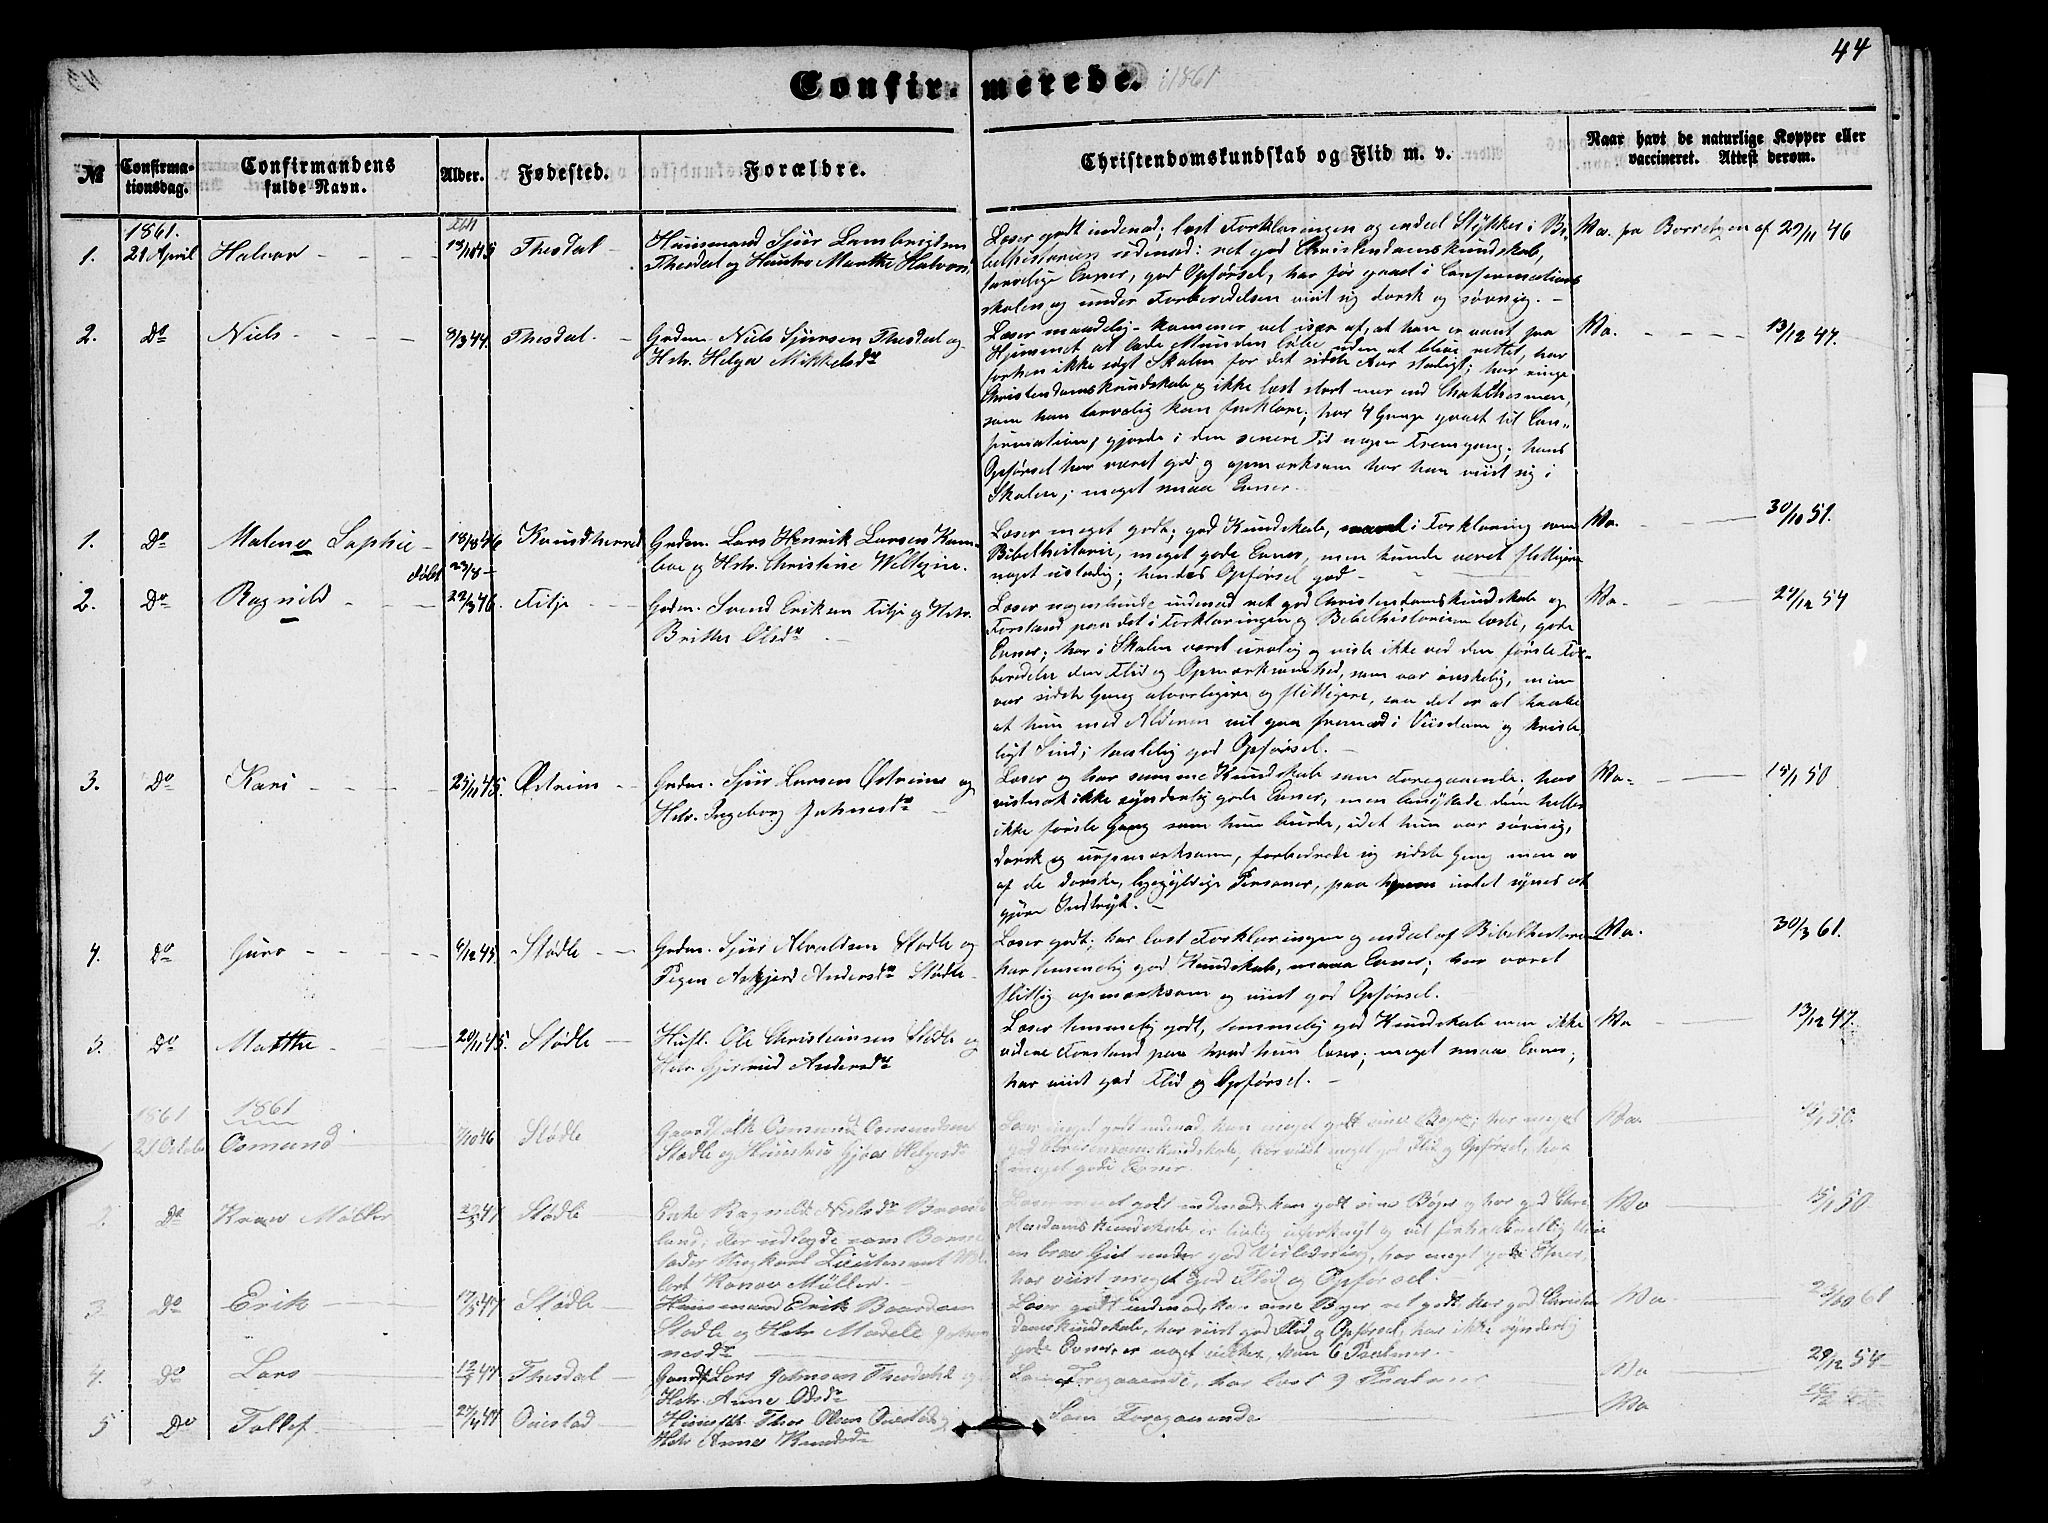 44
Confirmerede. 1861
No
Confirma-
tionsdag.
Confirmandens
fulde Navn.
Alder.
Fødested.
Forældre.
Christendomskundskab og Flid m. v.
Naar havt de naturlige Kopper eller
vaccineret. Attest derom.
1861.
1. 21 April Halvor Thesdal Huusmand Sjur Lambrigtsen
Thesdal og Hustro Marthe Halvors
Læser godt indenad, læst Forklaringen og endeel Stykker i Bi-
belhistorien udenad: ret god Christendomskundskab,
tarvelige Evner, god Opførsel, har før gaaet i Confirmations
skolen og under Forberedelsen viist sig dorsk og søvnig. -
Va. pr Borretzen af 29/11 46
2. Do Niels 8/3 44. Thesdal Grdm. Niels Sjursen Thesdal og
Hstr. Helga Mikkelsdr
Læser maadelig - kommer vel især af, at han er vant fra
Hjemmet at lade Munden løbe uden at blive rettet, har
forhen ikke søgt Skolen for det sidste Aar stadigt; har ringe
Christendomskundskab og ikke læst stort mer end Chatechismen,
som han tarvelig kan forklare; har 4 Gange gaaet til Con-
firmation, gjorde i den senere Tid nogen Fremgang; hans
Opførsel har været god og opmærksom har han viist sig i
Skolen; meget smaa Evner.
Va. 13/12 47.
1. Do Malene Sophie 18/8 46 Kvindherred Grdm. Lars Henrik Larsen
døbt 23/8 og Hstr. Christine
Læser meget godt; god Kundskab, i Forklaring som
Bibelhistorie, meget gode Evner, men kunde været flittigere
noget ustadig; hendes Opførsel god
Va. 30/10 51.
2. Do Ragnild 22/3 46. Fitje Grdm. Svend Eriksen Fitje og Hstr.
Britha Olsdr
Læser nogenlunde indenad ret god Christendomskundskab og
Forstand paa det i Forklaringen og Bibelhistorien læste, gode
Evner; har i Skolen været urolig og viste ikke ved den første For-
beredelse den Flid og Opmærksomhed, som var ønskelig, men
var sidste Gang alvorligere og flittigere, saa det er at haabe
at hun med Alderen vil gaa fremad i Viisdom og kriste-
ligt Sind; taalelig god Opførsel. -
Va. 27/12 54
3. Do Kari 25/11 45. Østreim Grdm. Sjur Larsen Østreim og
Hstr. Ingeborg Johnesdr
Læser og har samme Kundskab som Foregaaende; har
vistnok ikke synderlig gode Evner, men benyttede dem heller
ikke første Gang som hun burde, idet hun var søvnig,
dorsk og uopmærksom, forbedrede sig sidste Gang men er
af de dorske, ligegyldige Personer, paa hvem intet synes at
gjøre Indtryk. -
Va. 15/1 50
4. Do Guro 6/12 45. Stødle Grdm. Sjur Stødle og
Pigen Andersdr Stødle.
Læser godt; har læst Forklaringen og endeel af Bibelhistorien
har temmelig god Kundskab, smaa Evner; har været
flittig opmærksom og viist god Opførsel.
Va. 30/3 61.
3. Do Marthe 20/11 45. Stødle Husf. Ole Christiansen Stødle og
Hstr. Gjertrud Andersdr
Læser temmelig godt, temmelig god Kundskab men ikke
videre Forstand paa hvad hun læser; meget smaa Evner;
har viist god Flid og Opførsel. -
Va 13/12 47.
1861 1861
1 21 October Osmund /10 46 Stødle Gaardfolk Osmund Osmundsen
Stødle og Hustru Helgesdr
Læser meget godt indenad, kan meget godt sine Bøger; har meget
god Christendomskundskab, har viist meget god Flid og Opførsel, har
meget gode Evner.
Va. 15/1 50.
2. Do Müller 47 Stødle Enke Ragnilde Nielsdr
land; der udlagde som Barne-
fader Lieutenant
Müller. -
Læser meget godt indenad; kan godt sine Bøger og har god Chri-
stendomskundskab
en brav Gut under god Veiledning, har meget gode Evner
har viist meget god Flid og Opførsel. -
Va 15/1 50
3. Do Erik 17/5 47 Stødle Huusmand Erik Baardsen
Stødle og Hstr Johan-
nesdr
Læser godt indenad, kan sine Bøger ret godt, har god Christen
domskundskab, har viist god Flid og Opførsel, har ikke synderlig
gode Evner, kun 6 Psalmer.
Va 23/10 61
4. Do Lars 47 Thesdal Lars Johnsen Thesdal og
Hstr. Anne Olsdr
Som Foregaaende, har læst 9 Psalmer
Va 29/12 54
5 Do Tollef 47 Onestad Thor Olsen Onestad og
Hstr Anna Knudsdr
Som Foregaaende
Va